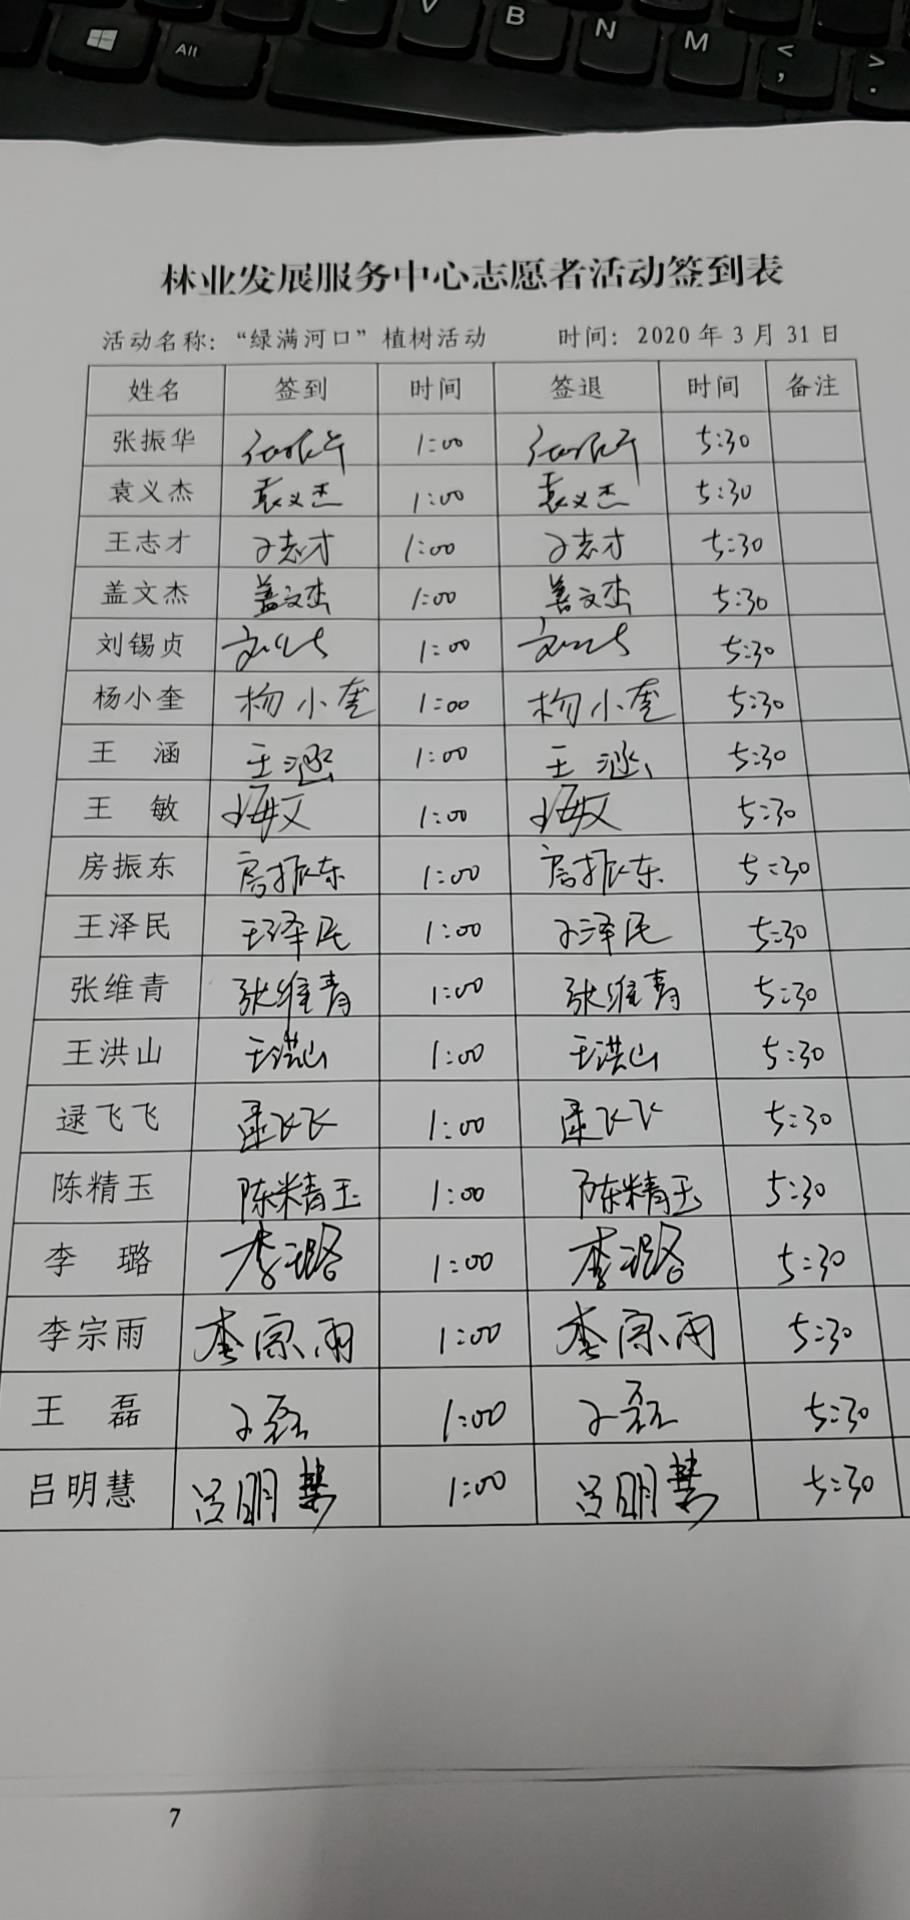 Alt V B N M < , > .
林业发展服务中心志愿者活动签到表
活动名称：“绿满河口”植树活动 时间：2020年3月31日
姓名 签到 时间 签退 时间 备注
张振华 1:00 5:30
袁义杰 袁义杰 1:00 袁义杰 5:30
王志才 王志才 1:00 王志才 5:30
盖文杰 盖文杰 1:00 盖文杰 5:30
刘锡贞 1:00 5:30
杨小奎 杨小奎 1:00 杨小奎 5:30
王 涵 王涵 1:00 王涵 5:30
王 敏 王敏 1:00 王敏 5:30
房振东 房振东 1:00 房振东 5:30
王泽民 王泽民 1:00 王泽民 5:30
张维青 张维青 1:00 张维青 5:30
王洪山 王洪山 1:00 王洪山 5:30
逯飞飞 逯飞飞 1:00 逯飞飞 5:30
陈精玉 陈精玉 1:00 陈精玉 5:30
李 璐 李璐 1:00 李璐 5:30
李宗雨 李宗雨 1:00 李宗雨 5:30
王 磊 王磊 1:00 王磊 5:30
吕明慧 吕明慧 1:00 吕明慧 5:30
7